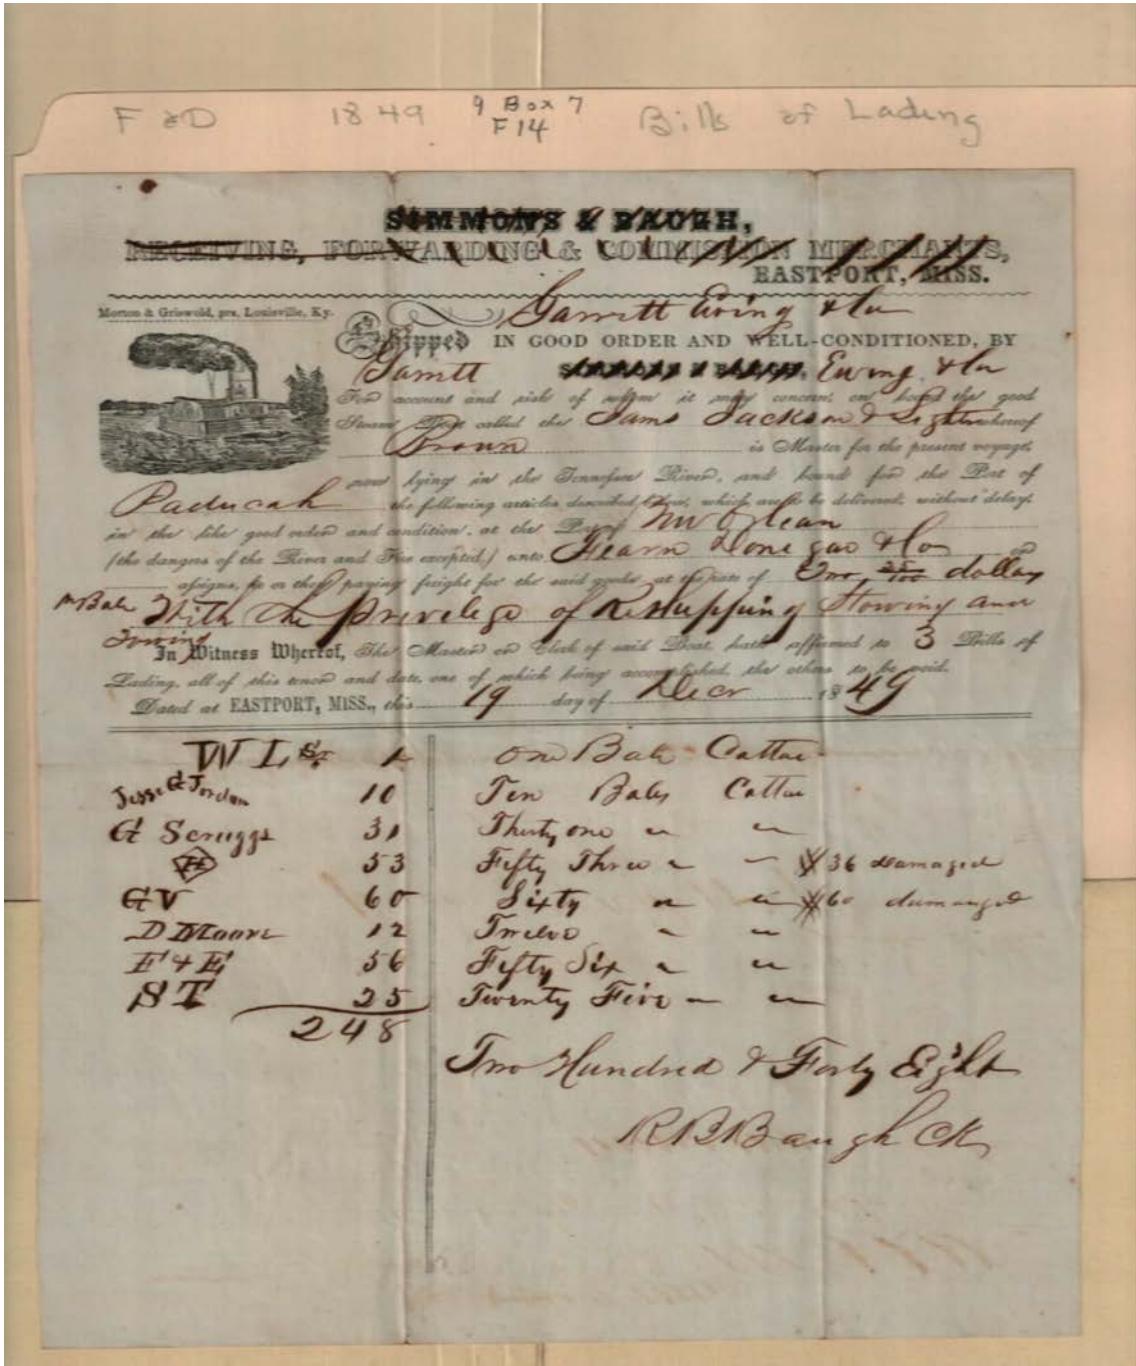 F & D 1849 9 Box 7 Bills of Lading
F14
SIMMONS & BAUGH,
RECEIVING, FORWARDING & COMMISSION MERCHANTS,
EASTPORT, MISS.
Morton & Griswold, prs, Louisville, Ky.
Garrett Ewing & Co
Shipped IN GOOD ORDER AND WELL-CONDITIONED, BY
Garrett SIMMONS & BAUGH, Ewing & Co
For account and risk of whom it may concern, on board the good
Steam Boat called the James Jackson & Lighter whereof
Brown is Master for the present voyage,
now lying in the Tennessee River, and bound for the Port of
Paducah the following articles described below, which are to be delivered, without delay,
in the like good order and condition, at the Port of New Orlean
(the dangers of the River and Fire excepted,) unto Fearn Donegan & Co or
assigns, he or they paying freight for the said goods, at the rate of Two 25/100 dollars
Bale With the privelege of Reshipping Stowing and
Towing
In Witness Whereof, The Master or Clerk of said Boat, hath affirmed to 3 Bills of
Lading, all of this tenor and date, one of which being accomplished, the others to be void.
Dated at EASTPORT, MISS., this 19 day of Decr 1849
W L Sr. 1 One Bale Cotton
Jesse G Jordan 10 Ten Bales Cotton
G Scruggs 31 Thirty one " "
H 53 Fifty Three " " 36 damaged
GV 60 Sixty " " 60 dumanged
D Moore 12 Twelve " "
F & E 56 Fifty Six " "
ST 25 Twenty Five " "
248
Two Hundred & Forty Eight
R B Baugh Ck